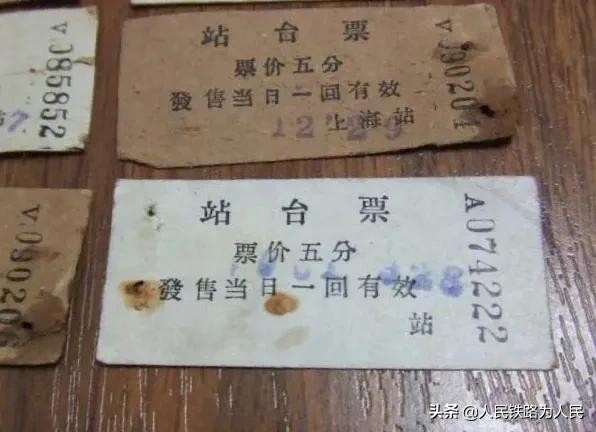 V085852
站 台 票
票价五分
發售当日一回有效
12 29
上海站
V090204
V090206
站 台 票
票价五分
發售当日一回有效
站
A074222
头条 @人民铁路为人民